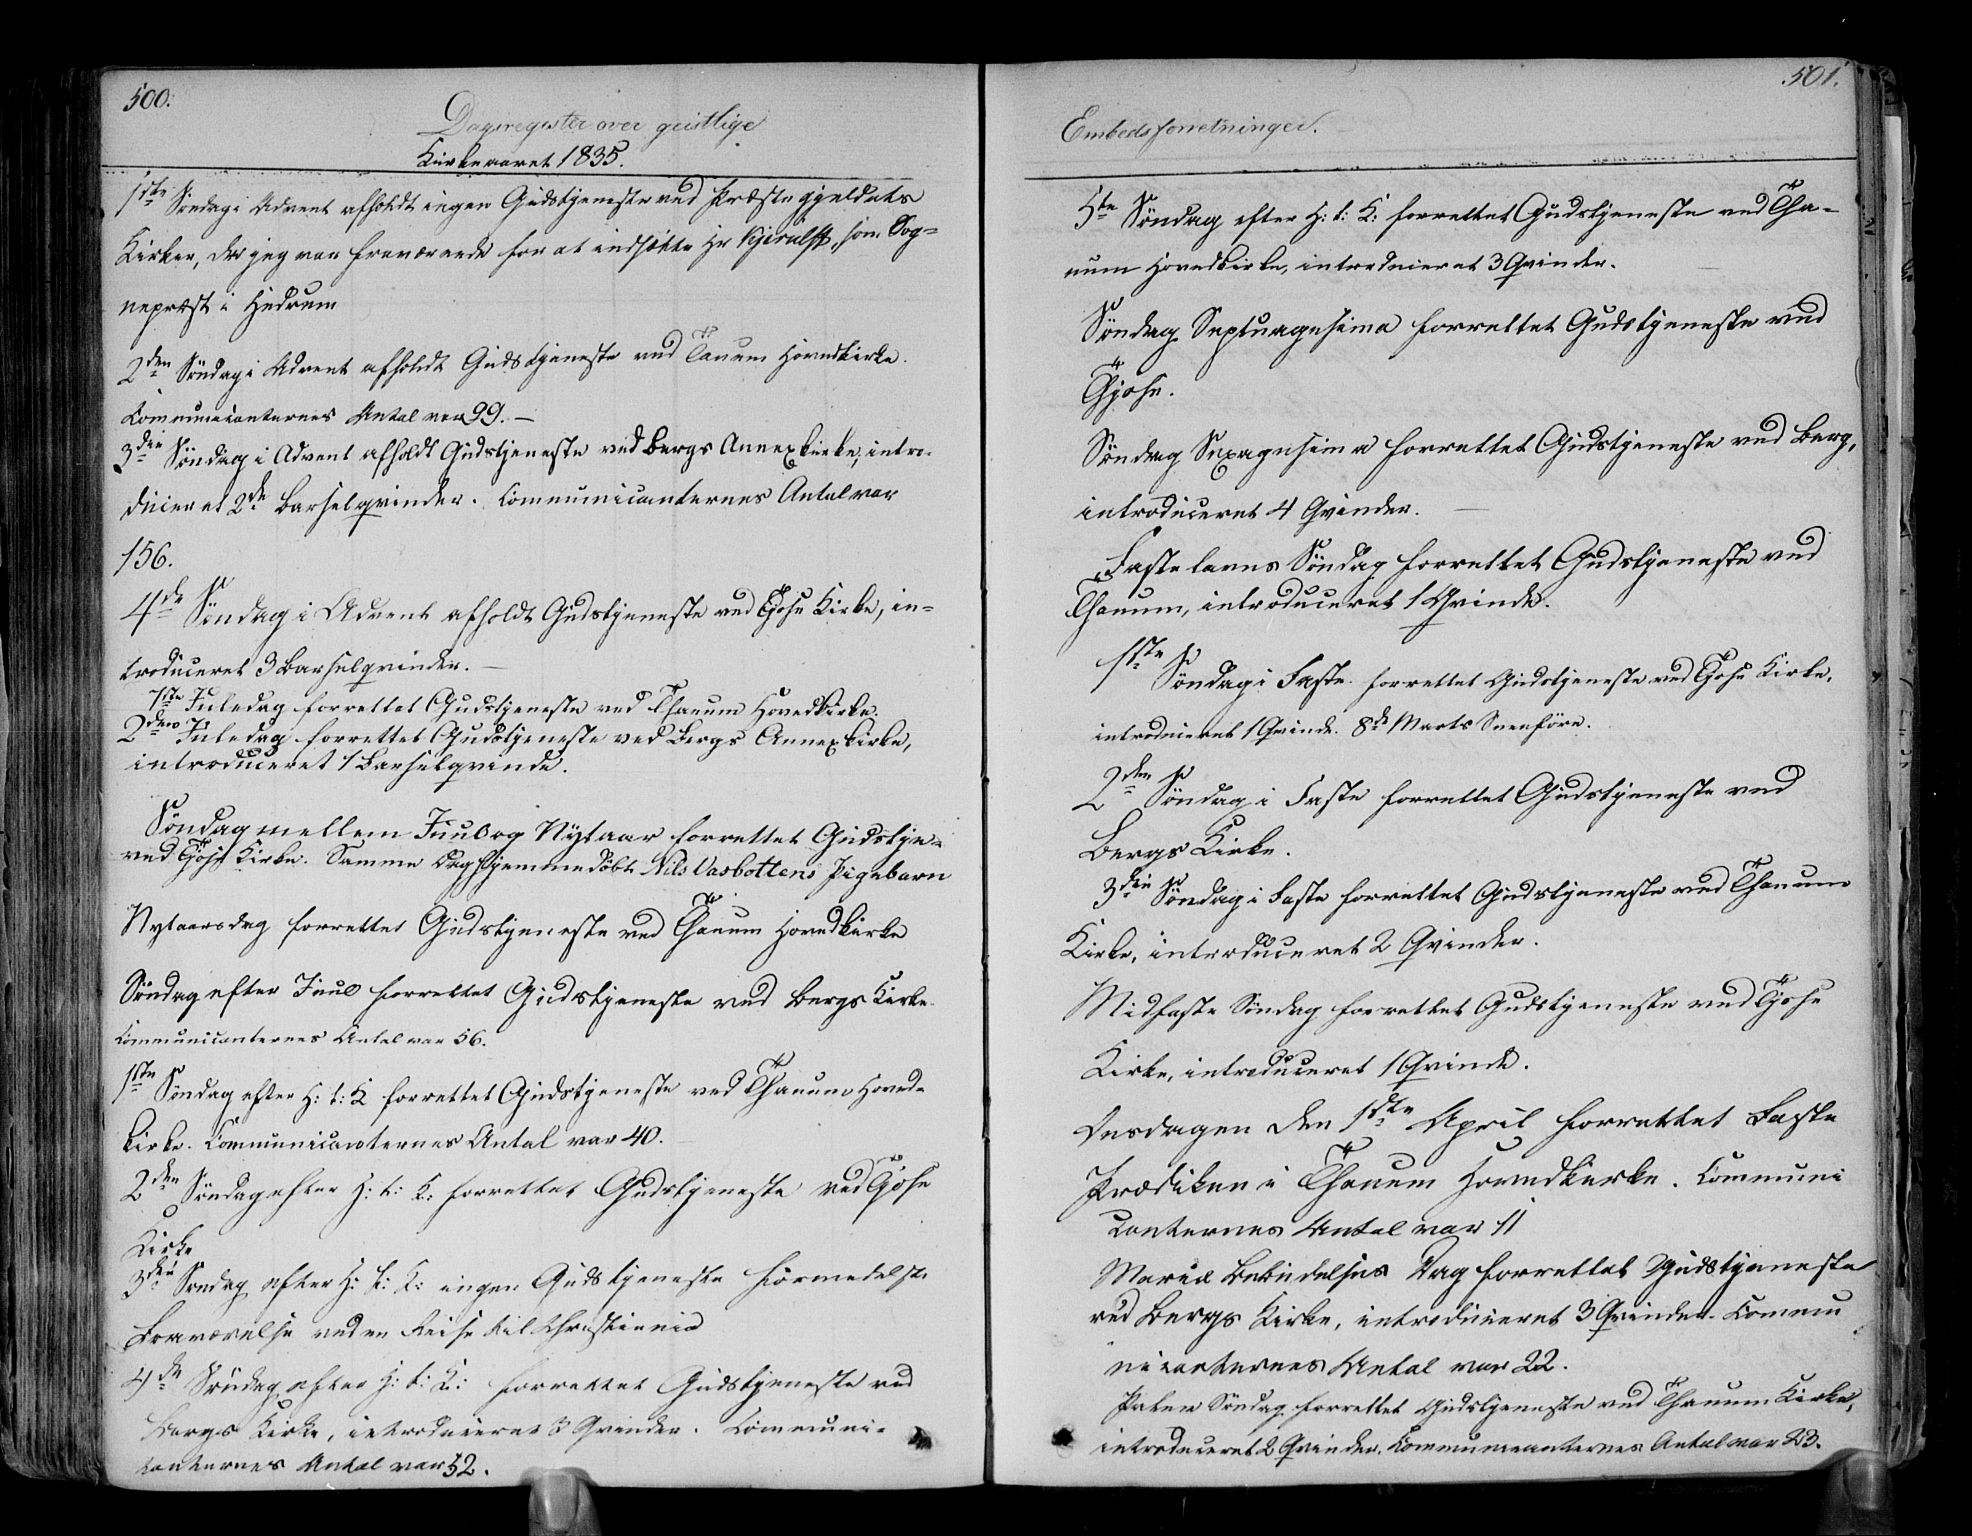 500.
Dagsregister over geistlige
Kirkeaaret 1835.
1ste Søndag i Advent afholdt ingen Gudstjeneste ved Præstegjeldets
Kirker, da jeg var fraværende for at indsætte Hr Kjerulff, som Sog-
nepræst i Hedrum
2den Søndag i Advent afholdt Gudstjeneste ved Tanum Hovedkirke.
Communicanternes Antal var 99. —
3die Søndag i Advent afholdt Gudstjeneste ved Bergs Annexkirke, intro-
duceret 2de Barselqvinder. Communicanternes Antal var
156.
4de Søndag i Advent afholdt Gudstjeneste ved Tjøse Kirke, in-
troduceret 3 Barselqvinder. —
1ste Juledag forrettet Gudstjeneste ved Thanum Hovedkirke.
2den Juledag forrettet Gudstjeneste ved Bergs Annexkirke,
introduceret 1 Barselqvinde.
Søndag mellem Juul og Nytaar forrettet Gudstje-
ved Tjøse Kirke. Samme Dag hjemmedøbt Nils Vasbottens Pigebarn
Nytaarsdag forrettet Gudstjeneste ved Thanum Hovedkirke
Søndag efter Juul forrettet Gudstjeneste ved Bergs Kirke
Communicanternes Antal var 56.
1ste Søndag efter H: t: K forrettet Gudstjeneste ved Thanum Hoved-
kirke. Communicanternes Antal var 40.
2den Søndag efter H: t: K: forrettet Gudstjeneste ved Tjøse
Kirke
3die Søndag efter H: t: K: ingen Gudstjeneste formedelst
Fraværelse ved en Reise til Christiania
4de Søndag efter H: t: K: forrettet Gudstjeneste ved
Bergs Kirke, introduceret 3 Qvinder. Communi-
canternes Antal var 52.
501.
Embedsforretninger.
5te Søndag efter H: t: K: forrettet Gudstjeneste ved Tha-
num Hovedkirke, introduceret 3 Qvinder.
Søndag Septuagesima forrettet Gudstjeneste ved
Thjøse.
Søndag Sexagesima forrettet Gudstjeneste ved Berg,
introduceret 4 Qvinder. —
Fastelavns Søndag forrettet Gudstjeneste ved
Thanum, introduceret 1 Qvinde.
1ste Søndag i Faste forrettet Gudstjeneste ved Tjøse Kirke,
introduceret 1 Qvinde. 8de Marts Sneeføre.
2den Søndag i Faste forrettet Gudstjeneste ved
Bergs Kirke.
3die Søndag i Faste forrettet Gudstjeneste ved Thanum
Kirke, introduceret 2 Qvinder.
Midfaste Søndag forrettet Gudstjeneste ved Tjøse
Kirke, introduceret 1 Qvinde.
Onsdagen den 1ste April forrettet Faste
Prædiken i Thanum Hovedkirke. Communi
canternes Antal var 11
Mariæ Bebudelses Dag forrettet Gudstjeneste
ved Bergs Kirke, introduceret 3 Qvinder. Commu
nicanternes Antal var 22.
Palme Søndag forrettet Gudstjeneste ved Thanum Kirke,
introduceret 2 Qvinder. Communicanternes Antal var 23.